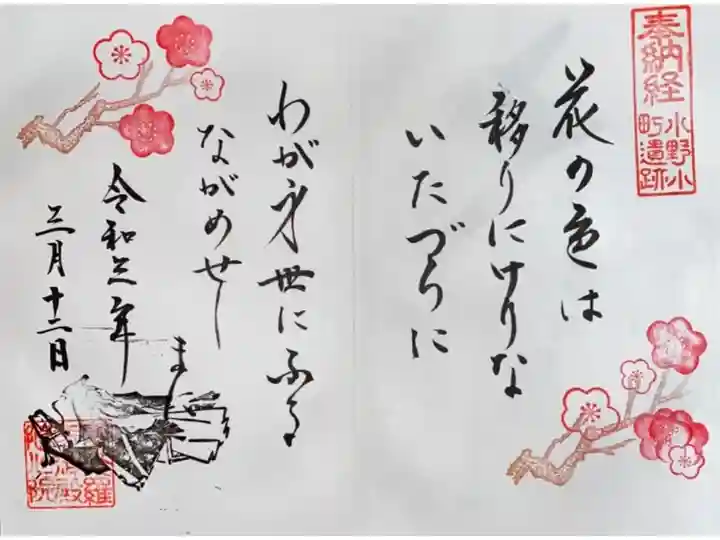 奉納経
小野小
町遺跡
花の色は
移りにけりな
いたづらに
わが身世にふる
ながめせし
ま
令和三年
三月十二日